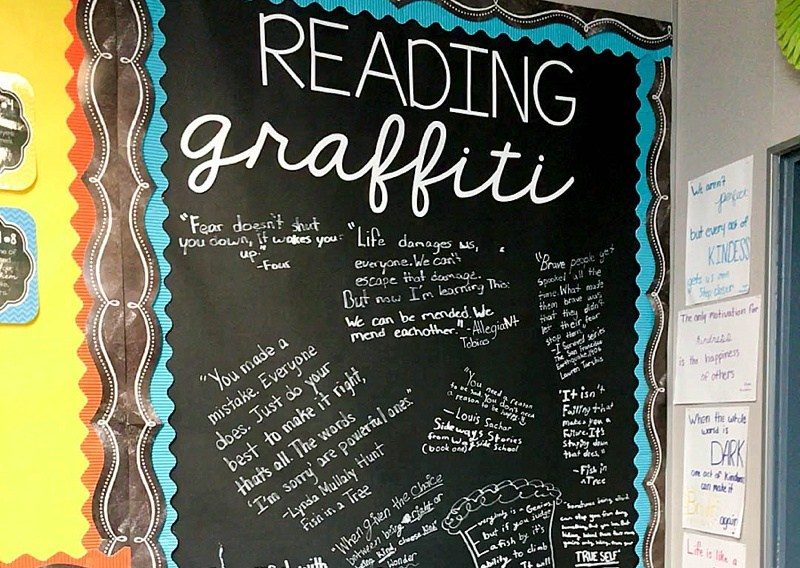 READING
graffiti
"Fear doesn't shut
you down, it wakes you
up."
-Four
"Life damages us,
everyone. We can't
escape that damage.
But now I'm learning This:
We can be mended. We
mend eachother." -AllegiaNt
Tobias
"Brave people get
spooked all the
time. What made
them brave was
that they didn't
let their fear
stop them"
-I Survived series
The San Francisco
Earthquake, 1906
Lauren Tarshis
"You made a
mistake. Everyone
does. Just do your
best to make it right,
that's all. The words
'I'm sorry' are powerful ones."
-Lynda Mullaly Hunt
Fish in a Tree
"You need a reason
to be sad. You don't need
a reason to be happy."
- Louis Sachar
Sideways Stories
from Wayside School
(book one)
"It isn't
Failing that
makes you a
Failure. It's
staying down
that does."
-Fish in
a Tree
"When given the Choice
between being right or
being kind choose kind
Wonder
Everybody is a Genius
but if you judge
a fish by it's
ability to climb
it will
TRUE SELF"
08
We aren't
perfect
but every act of
KINDESS
gets us one
Step closer
The only motivation for
kindness
is the happiness
of others
When the whole
world is
DARK
one act of kindness
can make it
Bright
again
Life is like a